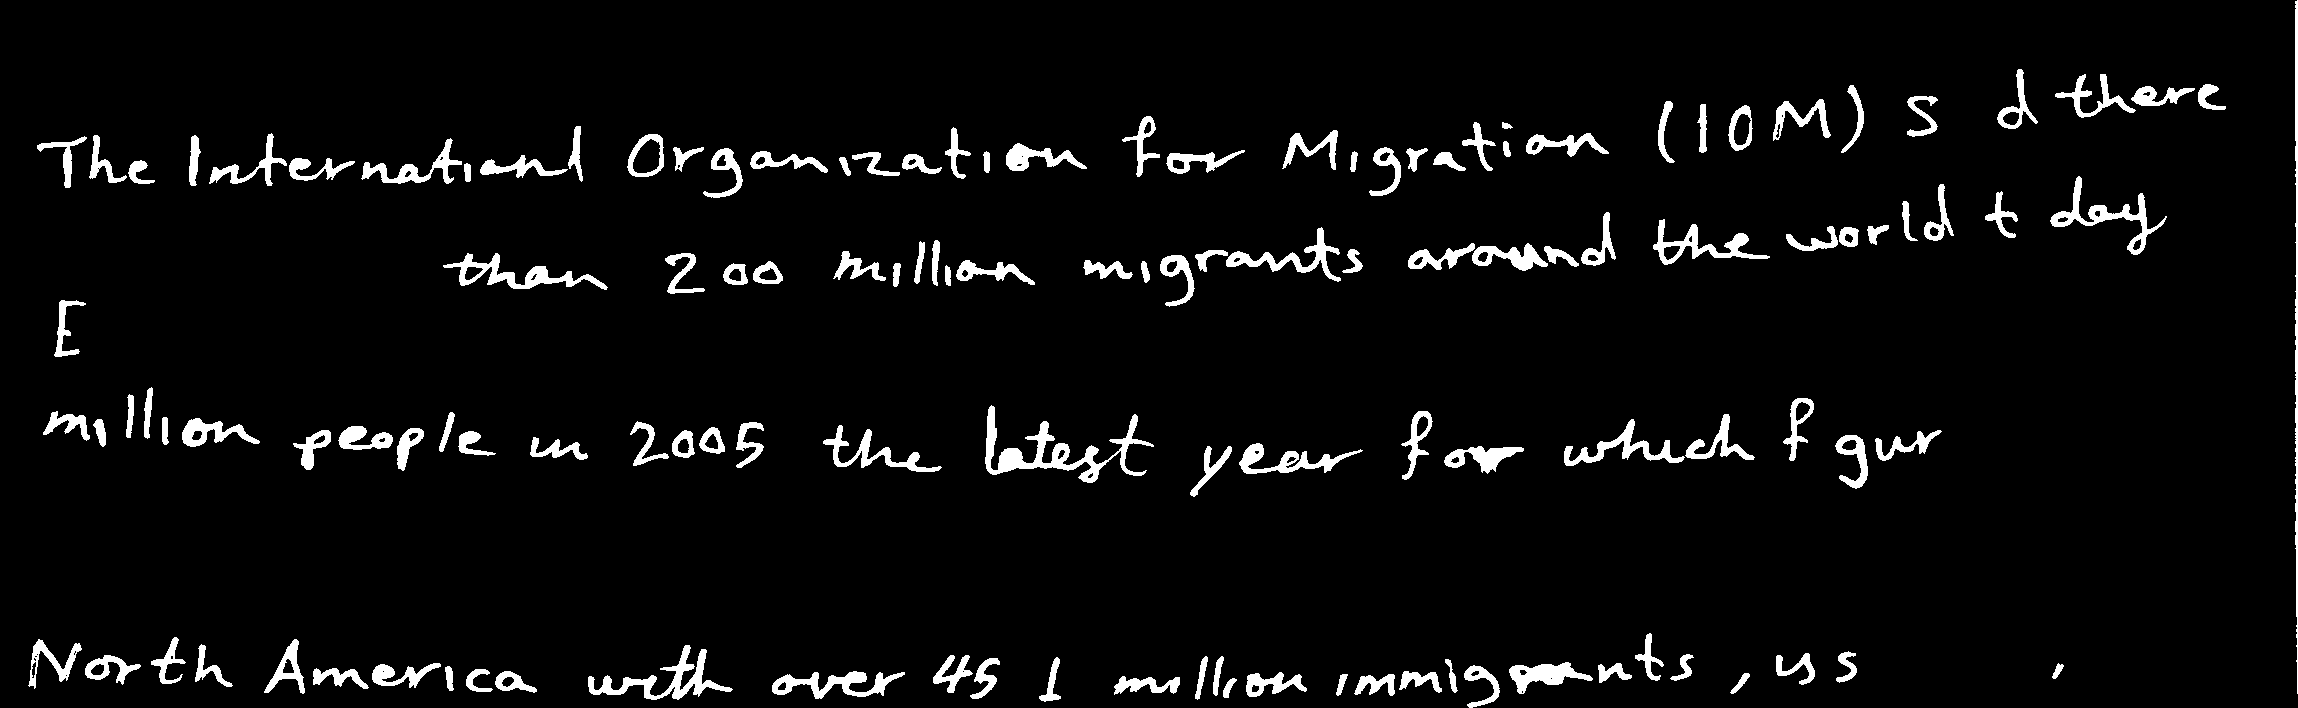 The International Organization for Migration (IOM) there
than 200 million migrants around the world day
E
million people in 2005 the latest year for which
North America with over 45 1 million immigrants,